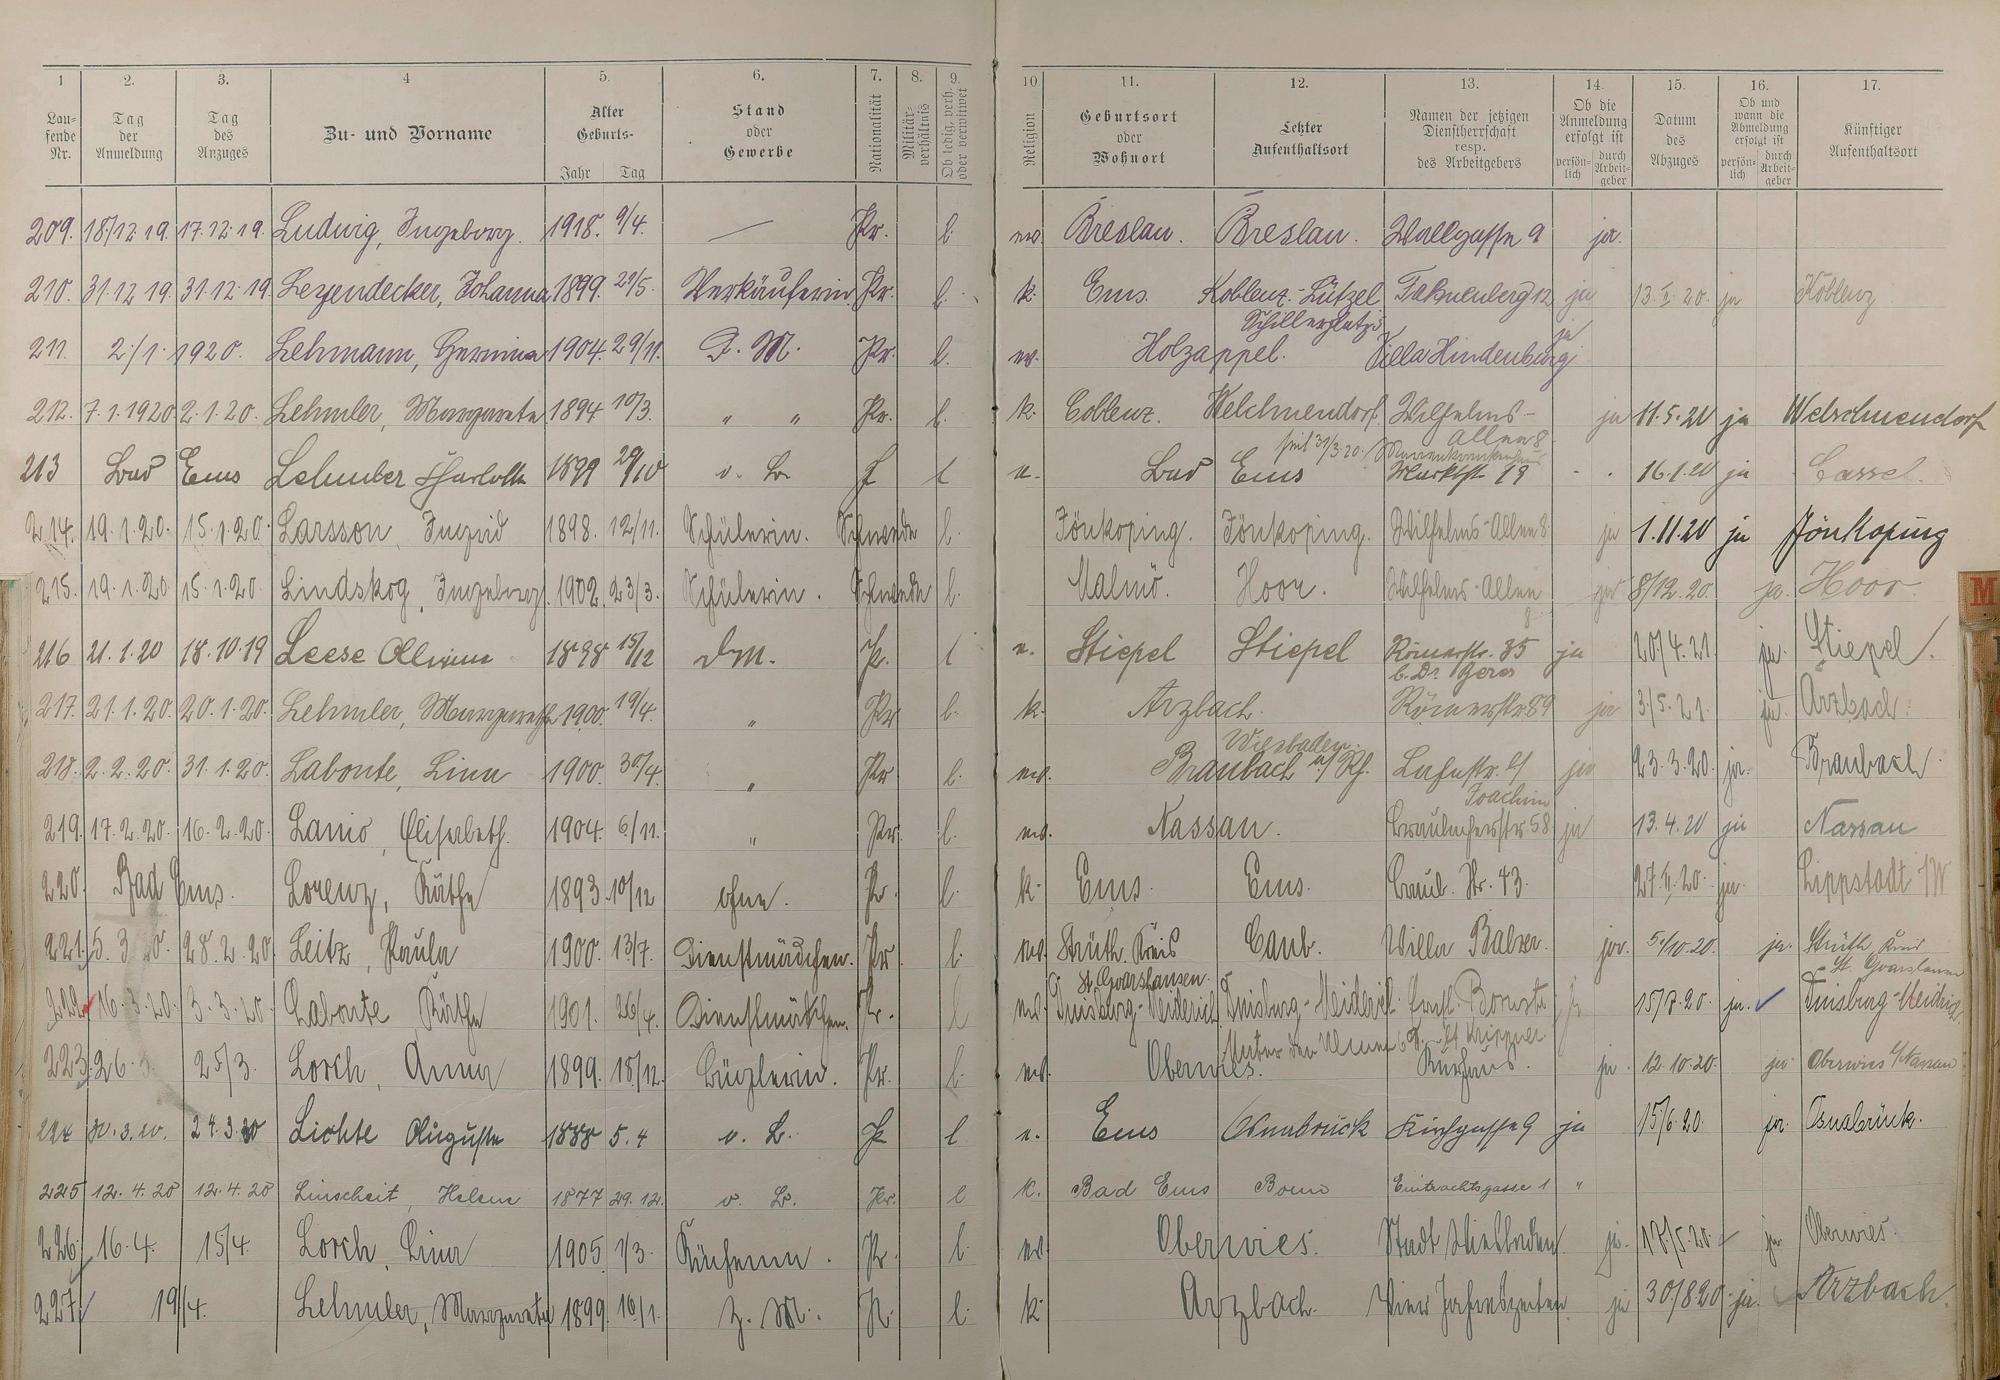 1 2. 3. 4 5. 6. 7. 8. 9. 10 11. 12. 13. 14. 15. 16. 17.
Laufende Nr. Tag der Anmeldung Tag des Anzuges Zu- und Vorname Alter Geburts- Jahr Tag Stand oder Gewerbe Nationalität Militärverhältnis Ob ledig, verh. oder verwitwet Religion Geburtsort oder Wohnort Letzter Aufenthaltsort Namen der jetzigen Dienstherrschaft resp. des Arbeitgebers Ob die Anmeldung erfolgt ist persönlich durch Arbeitgeber Datum des Abzuges Ob und wann die Abmeldung erfolgt ist persönlich durch Arbeitgeber Künftiger Aufenthaltsort
209. 18/12 19. 17.12.19. Ludwig, Ingeborg. 1918. 9/4. — Pr. l. ev. Breslau. Breslau. Wallgasse 9 ja.
210. 31.12 19. 31.12.19. Leyendecker, Johanna 1899. 29/5. Verkäuferin Pr. l. k. Ems. Koblenz-Lützel Schillerplatz Fahnenberg 12 ja 13.II.20. ja Koblenz
211. 2./1. 1920. Lehmann, Hermina 1904. 29/11. D. M. Pr. l. ev. Holzappel. Villa Hindenburg ja
212. 7.1.1920 2.1.20. Lehmler, Margareta 1894 10/3. " " Pr. l. k. Coblenz. Welchnendorf. Wilhelms-Allee 8. seit 31/3.20. Marienkrankenhaus ja 11.5.20 ja Welschnendorf
213 Bad Ems Lehmler Charlotte 1899 29/10 o. B. P l e. Bad Ems Marktstr. 19 - . 16.1.20 ja Cassel.
214. 19.1.20. 15.1.20. Larsson, Ingrid 1898. 12/11. Schülerin. Schwede l. Jönkoping. Jönkoping. Wilhelms-Allee 8 ja 1.11.20 ja Jönkoping
215. 19.1.20. 15.1.20. Lindskog, Ingeborg. 1902. 23/3. Schülerin. Schwede l. Malmö. Hoor. Wilhelms-Allee 8 ja 8/12.20. ja. Hoor.
216 21.1.20 18.10.19 Leese 1898 15/12 D.M. Pr. l e. Stiepel Stiepel Römerstr. 35 b. Dr. ja 20/4.21. ja. Stiepel.
217. 21.1.20. 20.1.20. Lehmler, Margareth 1900. 19/4. " Pr l. k. Arzbach. Römerstr 89 ja 3/5.21. ja. Arzbach.
218. 2.2.20. 31.1.20. Labonte, Lina 1900. 30/4. " Pr l. ev. Wiesbaden. Braubach a/Rh. ja 23.3.20. ja. Braubach.
219. 17.2.20. 16.2.20. Lanio, Elisabeth. 1904. 6./11. " Pr. l. ev. Nassau. Joachim Braubacherstr 58 ja 13.4.20 ja Nassau
220. Bad Ems. Lorenz, Käthe 1893 10/12 ohne. Pr. l. k. Ems. Ems. Braub. Str. 43. 27.II.20. ja. Lippstadt i/W
221. 5.3.20. 28.2.20. Leitz, Paula 1900. 13/7. Dienstmädchen. Pr. l. ev. Strüth. Kreis St. Goarshausen. Caub. Villa Balzer. ja. 5./10.20. ja. Strüth, Kreis St. Goarshausen
222. 16.3.20. 3.3.20. Labonte, Käthe 1901. 26/4. Dienstmädchen. Pr. l ev. Duisburg-Meiderich. Duisburg-Meiderich 15/7.20. ja. Duisburg-Meiderich
223. 26.3. 25/3. Lorch, Anna 1899. 18/12. Büglerin. Pr. l. ev. Oberwies. Kurhaus. ja. 12.10.20. ja Oberwies b/Nassau
224 30.3.20. 24.3.20 Lichte Auguste 1888 5.4 o. B. Pr l e. Ems Osnabrück Kirchgasse 9 ja 15/6.20. ja. Osnabrück.
225 12.4.20 12.4.20 Linscheit, Helene 1877 29.12. o. B. Pr. l k. Bad Ems Bonn Eintrachtsgasse 1 "
226. 16.4. 15/4. Lorch, Lina 1905. 1/3. Pr. l. ev. Oberwies. Stadt Wiesbaden ja. 17/5.20. ja. Oberwies.
227. 19/4. Lehmler, Margareta 1899. 16/1. Z. M. Pr. l. k. Arzbach. Vier Jahreszeiten ja 30/8 20. ja. Arzbach.
M